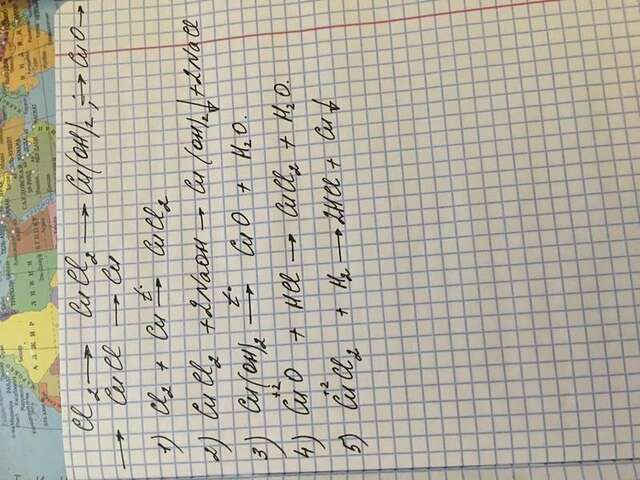 Cl₂ → CuCl₂ → Cu(OH)₂; → CuO →
→ CuCl → Cu
1) Cl₂ + Cu →t° CuCl₂
2) CuCl₂ + 2NaOH → Cu(OH)₂↓ + 2NaCl
3) Cu(OH)₂ →t° CuO + H₂O.
4) Cu⁺²O + HCl → CuCl₂ + H₂O.
5) Cu⁺²Cl₂ + H₂ → 2HCl + Cu↓
АЛЖИР
ЛИВИЯ